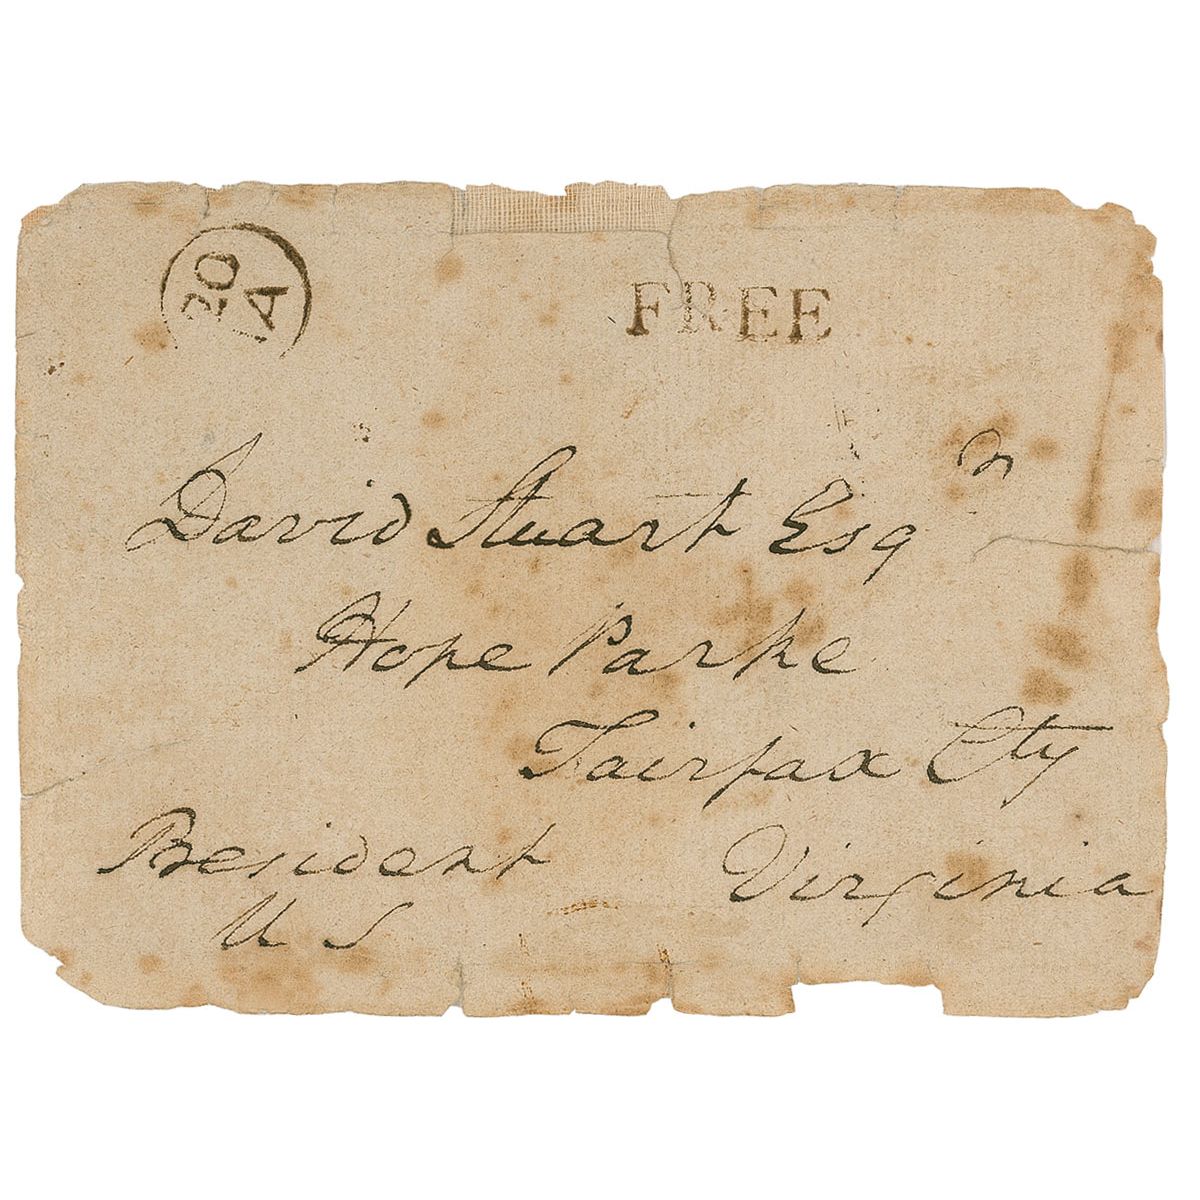 20
A
FREE
David Stuart Esqr
Hope Parke
Fairfax Cty
President Virginia
U S